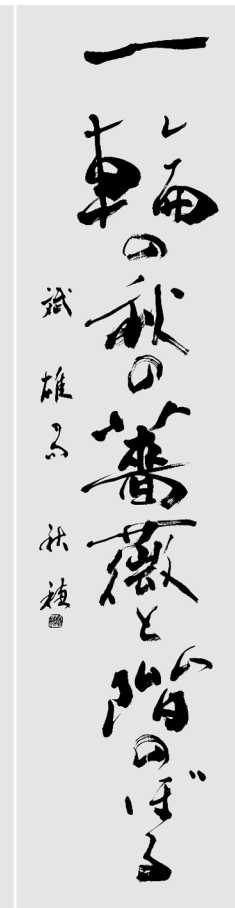 一輪の秋の薔薇と階のぼる
斌雄句 秋穂